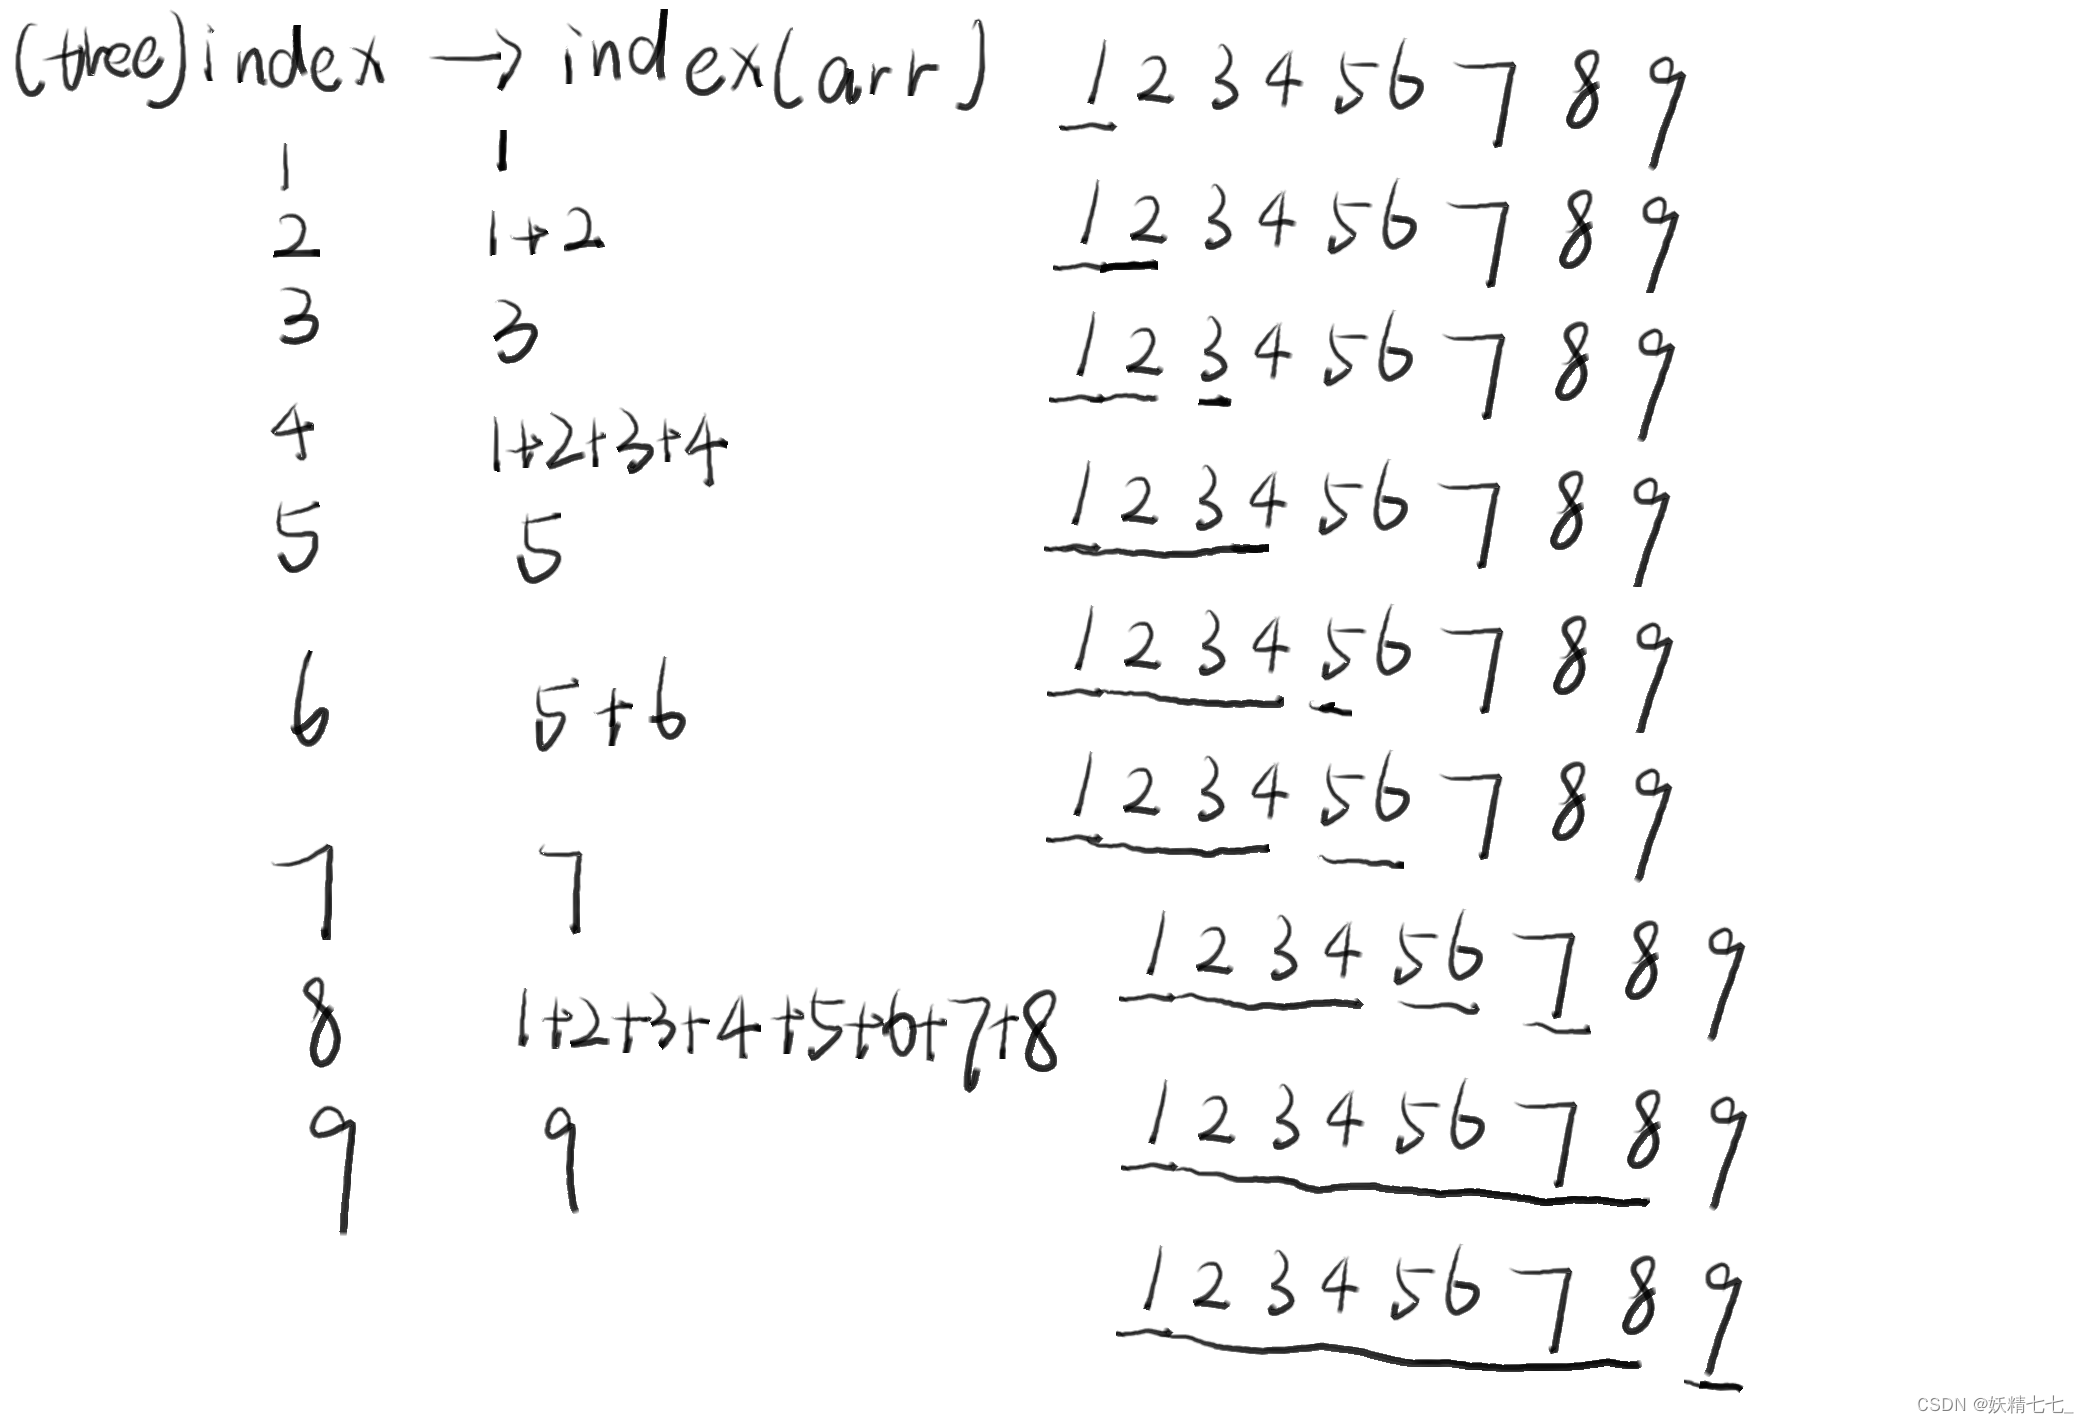 (tree)index → index(arr) 1 2 3 4 5 6 7 8 9
1 1
2 1+2 1 2 3 4 5 6 7 8 9
3 3 1 2 3 4 5 6 7 8 9
4 1+2+3+4 1 2 3 4 5 6 7 8 9
5 5
1 2 3 4 5 6 7 8 9
6 5+6
1 2 3 4 5 6 7 8 9
7 7
1 2 3 4 5 6 7 8 9
8 1+2+3+4+5+6+7+8
9 9 1 2 3 4 5 6 7 8 9
1 2 3 4 5 6 7 8 9
CSDN @妖精七七_